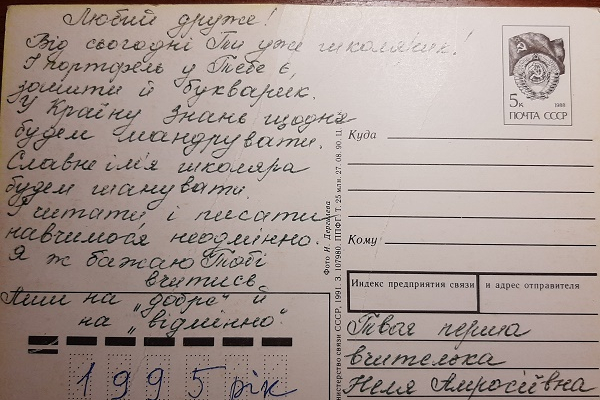 Любий друже!
Від сьогодні Ти уже школярик!
І портфель у Тебе є,
зошити й букварик.
У Країну Знань щодня
будем мандрувати.
Славне ім'я школяра
будем шанувати.
І читати і писати
навчимося неодмінно.
Я ж бажаю Тобі
вчитись
лиш на „добре" й
на „відмінно".
1995 рік
5к 1988
ПОЧТА СССР
Куда
Кому
Индекс предприятия связи
и адрес отправителя
Твоя перша
вчителька
Неля Амросіївна
Министерство связи СССР, 1991. З. 107980. ППФГ. Т. 25 млн. 27. 08. 90. Ц.
Фото И. Дергилева